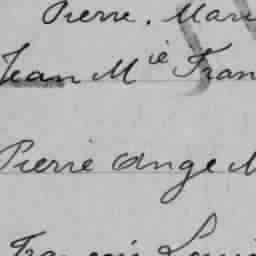 Pierre. Mari
Jean Mie Fran
Pierre Ange M
François Loui